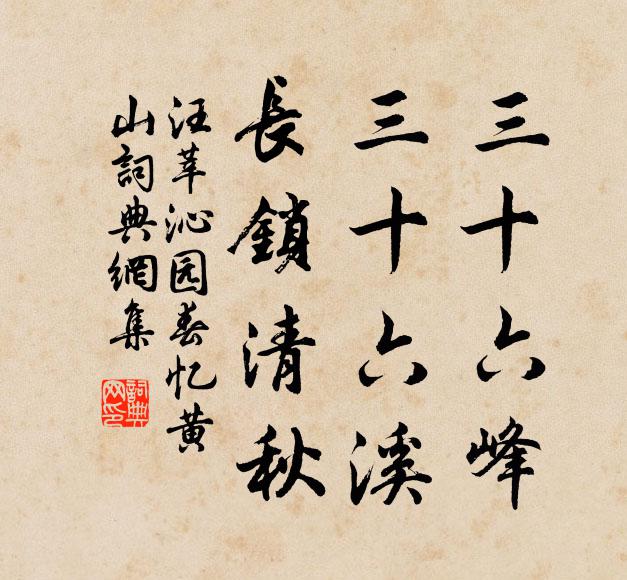 三十六峰
三十六溪
長鎖清秋
汪莘沁园春忆黄
山詞典網集
詞典网印